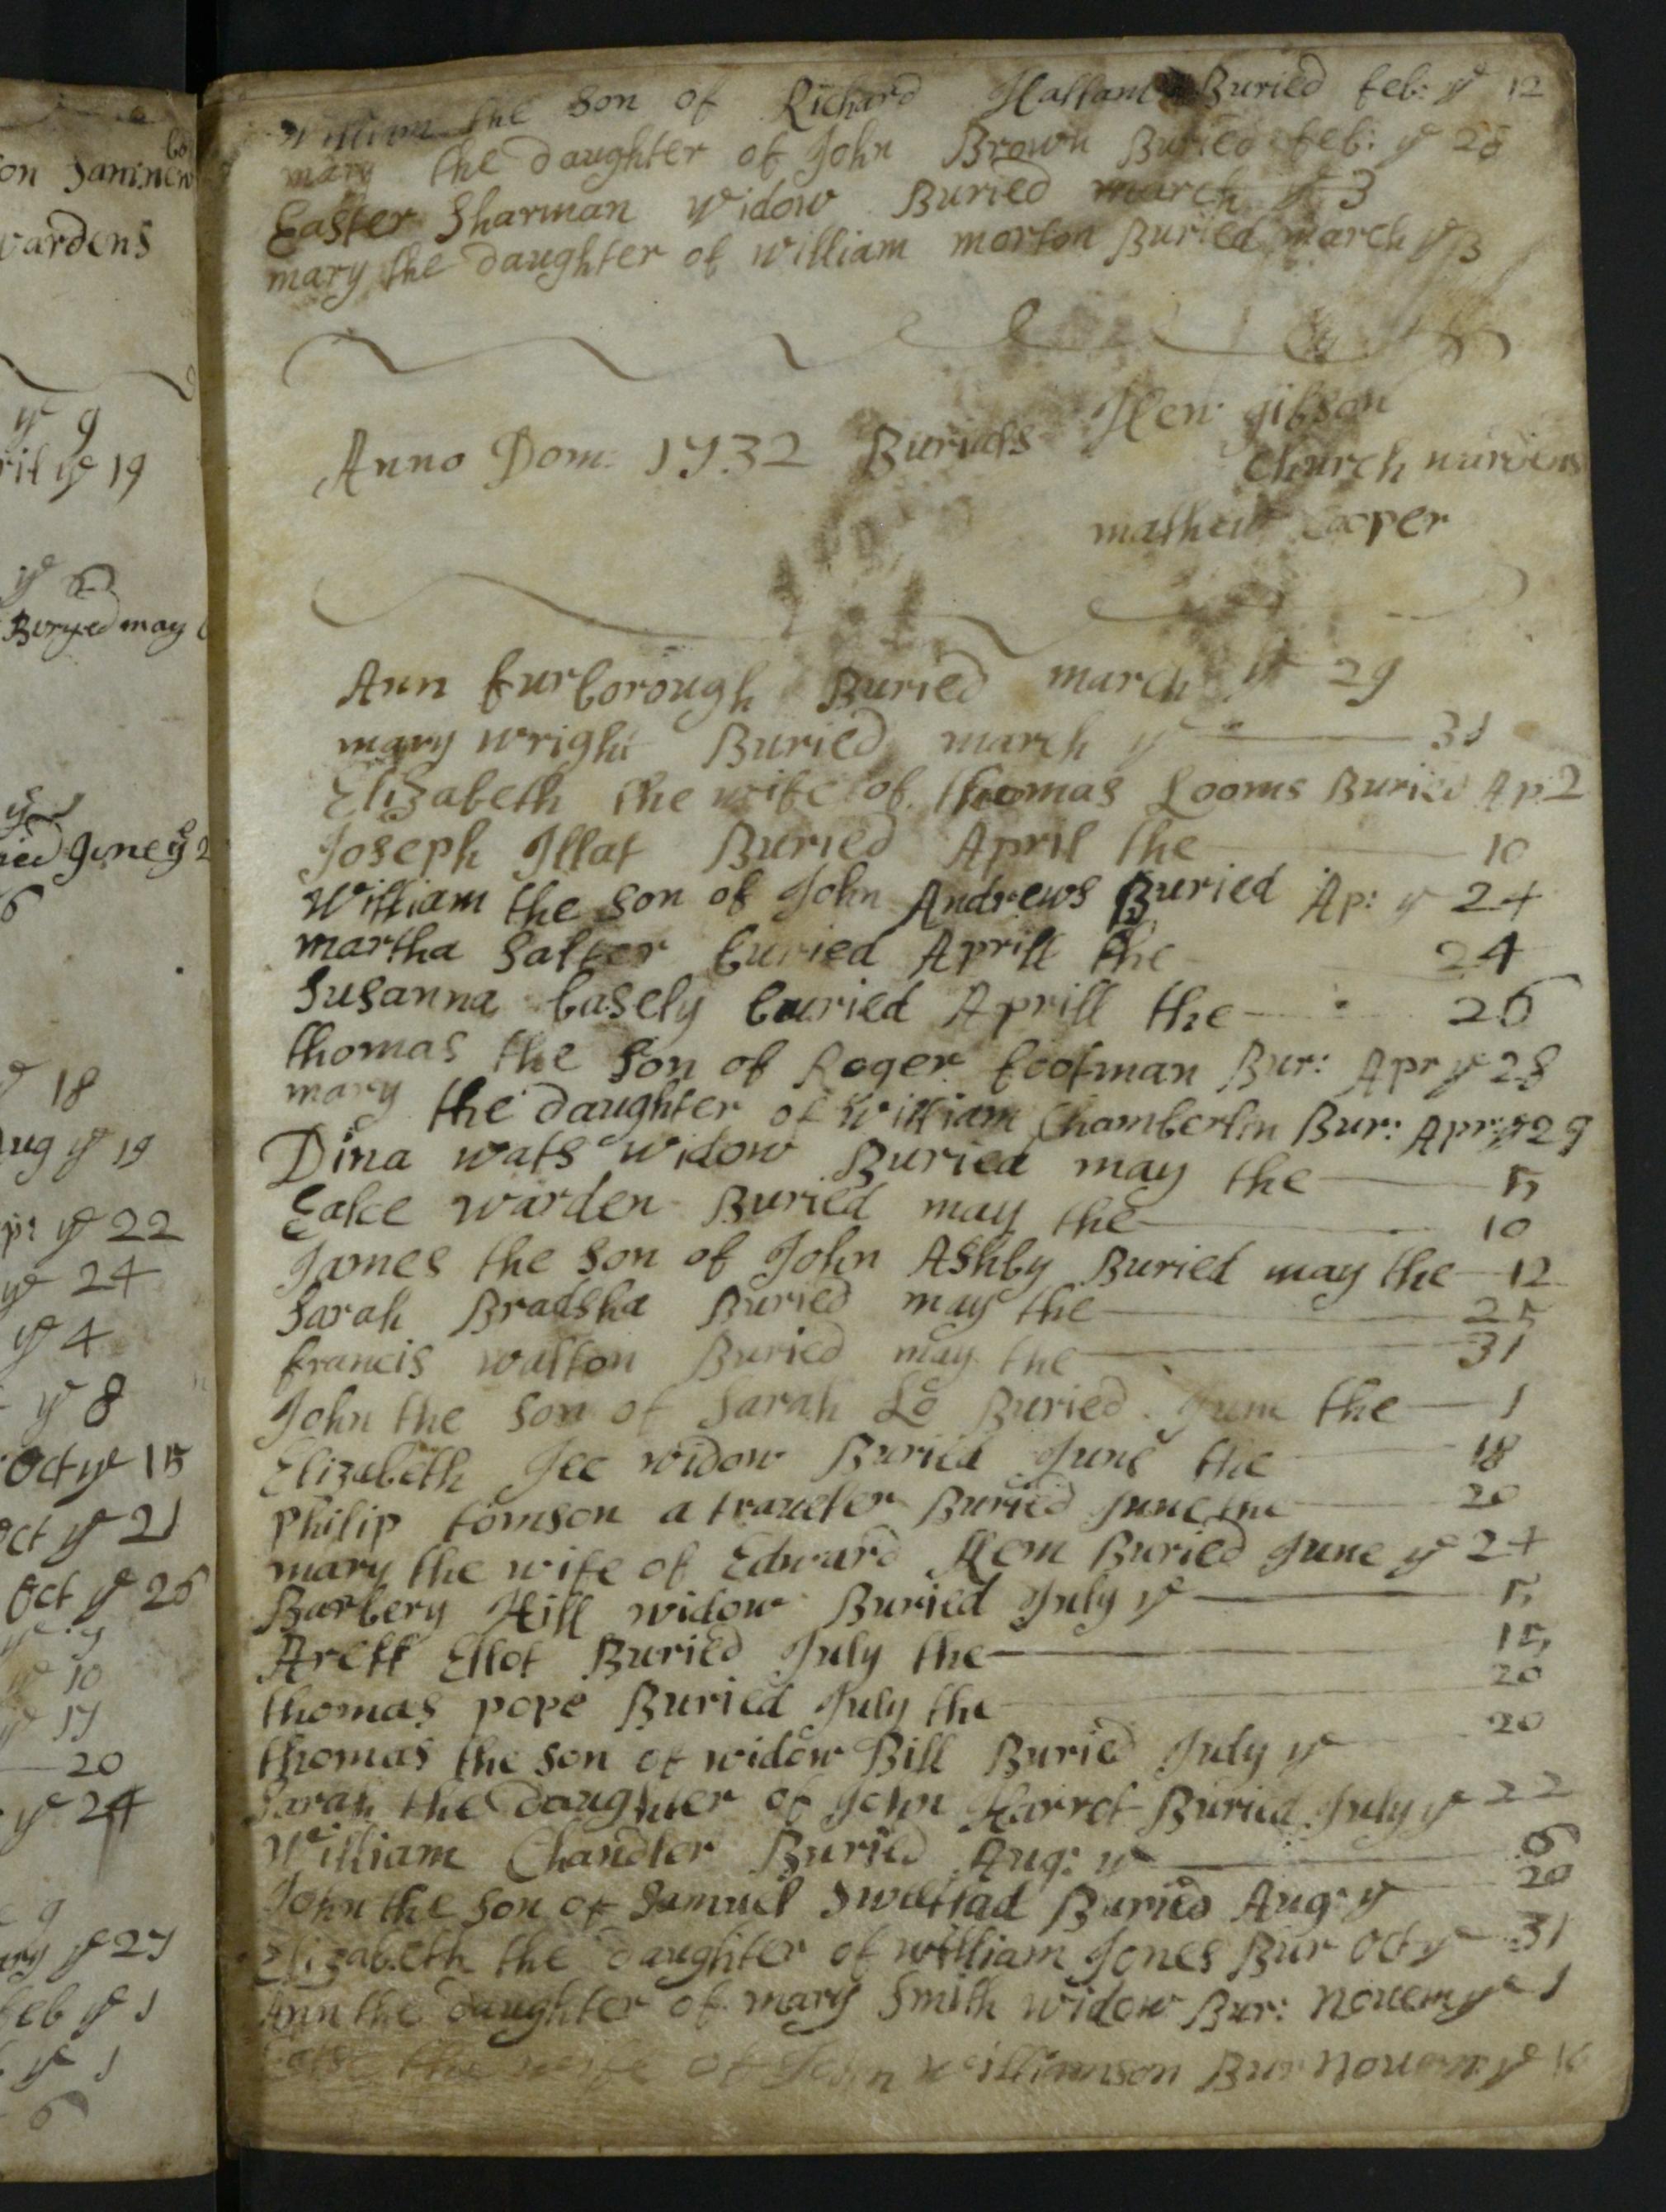 on
wardens
ye 9
ye 19
ye
Buryed may
June ye 2
6
ye 18
Aug ye 19
ye 22
ye 24
ye 4
ye 8
Oct ye 15
Oct ye 21
Oct ye 26
ye 10
ye 17
20
ye 24
9
ye 27
feb ye 1
ye 1
6
William the Son of Richard Hallam Buried feb: ye 12
mary the Daughter of John Brown Buried feb: ye 28
Easter Sharman Widow Buried march ye 3
mary the Daughter of william morton Buried march ye 13
Anno Dom: 1732 Burials Hen: gibson
Church wardens
mathew Cooper
Ann furborough Buried march ye 29
mary wright Buried march ye 31
Elizabeth the wife of thomas Looms Buried Ap: 2
Joseph Illat Buried April the 10
William the son of John Andrews Buried Ap: ye 24
martha Salter buried Aprill the 24
Susanna basely buried Aprill the 26
thomas the Son of Roger footman Bur: Apr ye 28
mary the daughter of William Chamberlin Bur: Apr: ye 29
Dina wats widow Buried may the 5
warden Buried may the 10
James the son of John Ashby Buried may the 12
Sarah Bradsha Buried may the 25
francis walton Buried may the 31
John the Son of Sarah Lo Buried June the 1
Elizabeth Jee widow Buried June the 18
Philip tomson a traueler Buried June the 20
mary the wife of Edward Kem Buried June ye 24
Barbery Hill widow Buried July ye 5
Arett Ellot Buried July the 15
thomas pope Buried July the 20
thomas the son of widow Bill Buried July ye 20
Sarah the Daughter of John Harrot Buried July ye 22
William Chandler Buried Aug: ye 6
John the Son of Samuel Buried Aug: ye 20
Elizabeth the Daughter of william Jones Bur Oct ye 31
Ann the daughter of mary Smith widow Bur: Nouem ye 1
the wife of John williamson Bur Nouem: ye 16